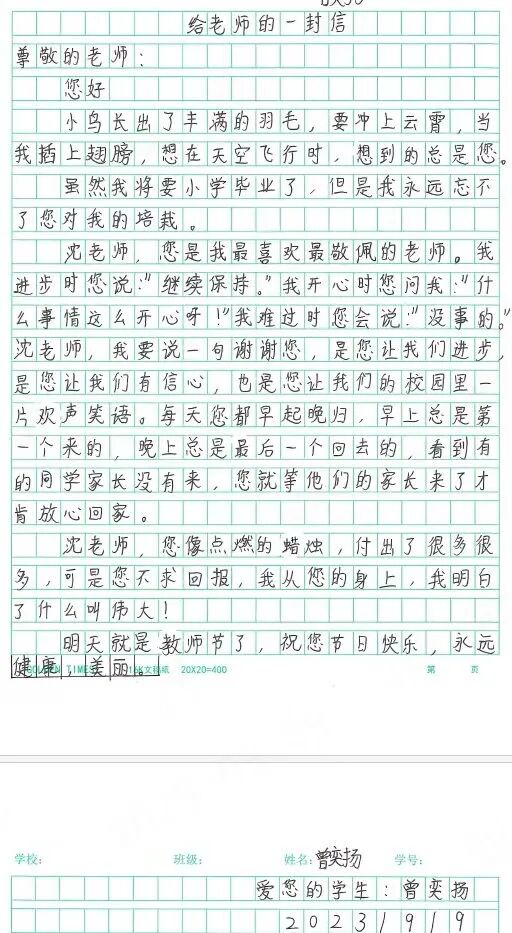 给老师的一封信
尊敬的老师：
您好
小鸟长出了丰满的羽毛，要冲上云霄，当
我插上翅膀，想在天空飞行时，想到的总是您。
虽然我将要小学毕业了，但是我永远忘不
了您对我的培栽。
沈老师，您是我最喜欢最敬佩的老师。我
进步时您说："继续保持。"我开心时您问我："什
么事情这么开心呀！"我难过时您会说："没事的。"
沈老师，我要说一句谢谢您，是您让我们进步，
是您让我们有信心，也是您让我们的校园里一
片欢声笑语。每天您都早起晚归，早上总是第
一个来的，晚上总是最后一个回去的，看到有
的同学家长没有来，您就等他们的家长来了才
肯放心回家。
沈老师，您像点燃的蜡烛，付出了很多很
多，可是您不求回报，我从您的身上，我明白
了什么叫伟大！
明天就是教师节了，祝您节日快乐，永远
健康，美丽。
文稿紙 20X20=400 第 页
学校： 班级： 姓名：曾奕扬 学号：
爱您的学生：曾奕扬
2023/9/9